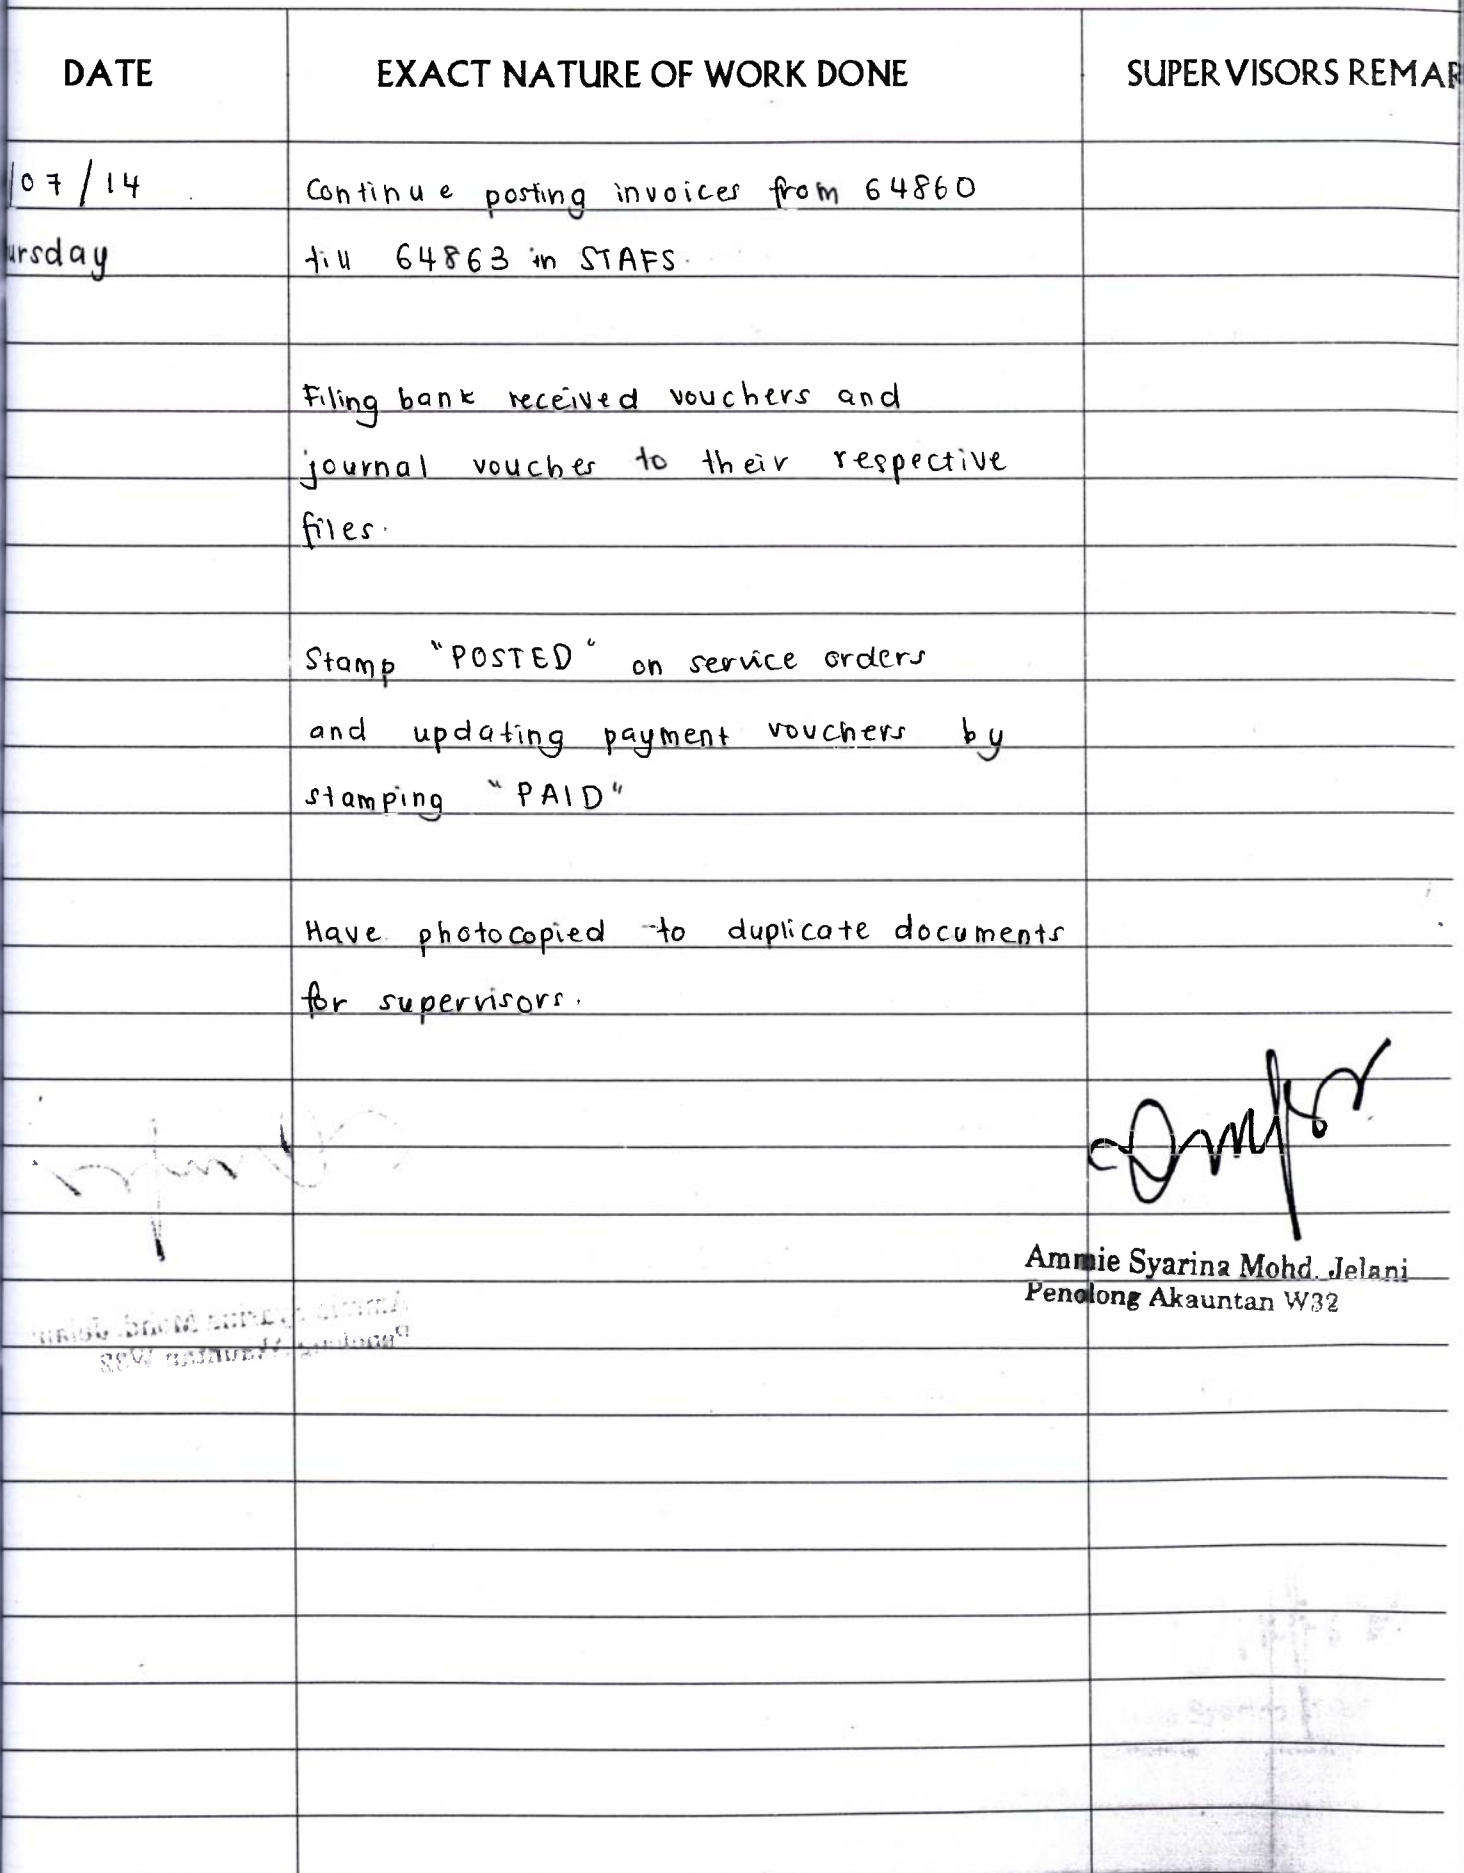 DATE EXACT NATURE OF WORK DONE SUPERVISORS REMAR
/07/14 Continue posting invoices from 64860
ursday till 64863 in STAFS.
Filing bank received vouchers and
journal voucher to their respective
files.
Stamp "POSTED" on service orders
and updating payment vouchers by
stamping "PAID"
Have photocopied to duplicate documents
for supervisors.
Ammie Syarina Mohd. Jelani
Penolong Akauntan W32